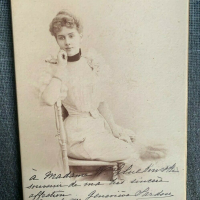 à Madame
souvenir de ma très sincère
affection Geneviève